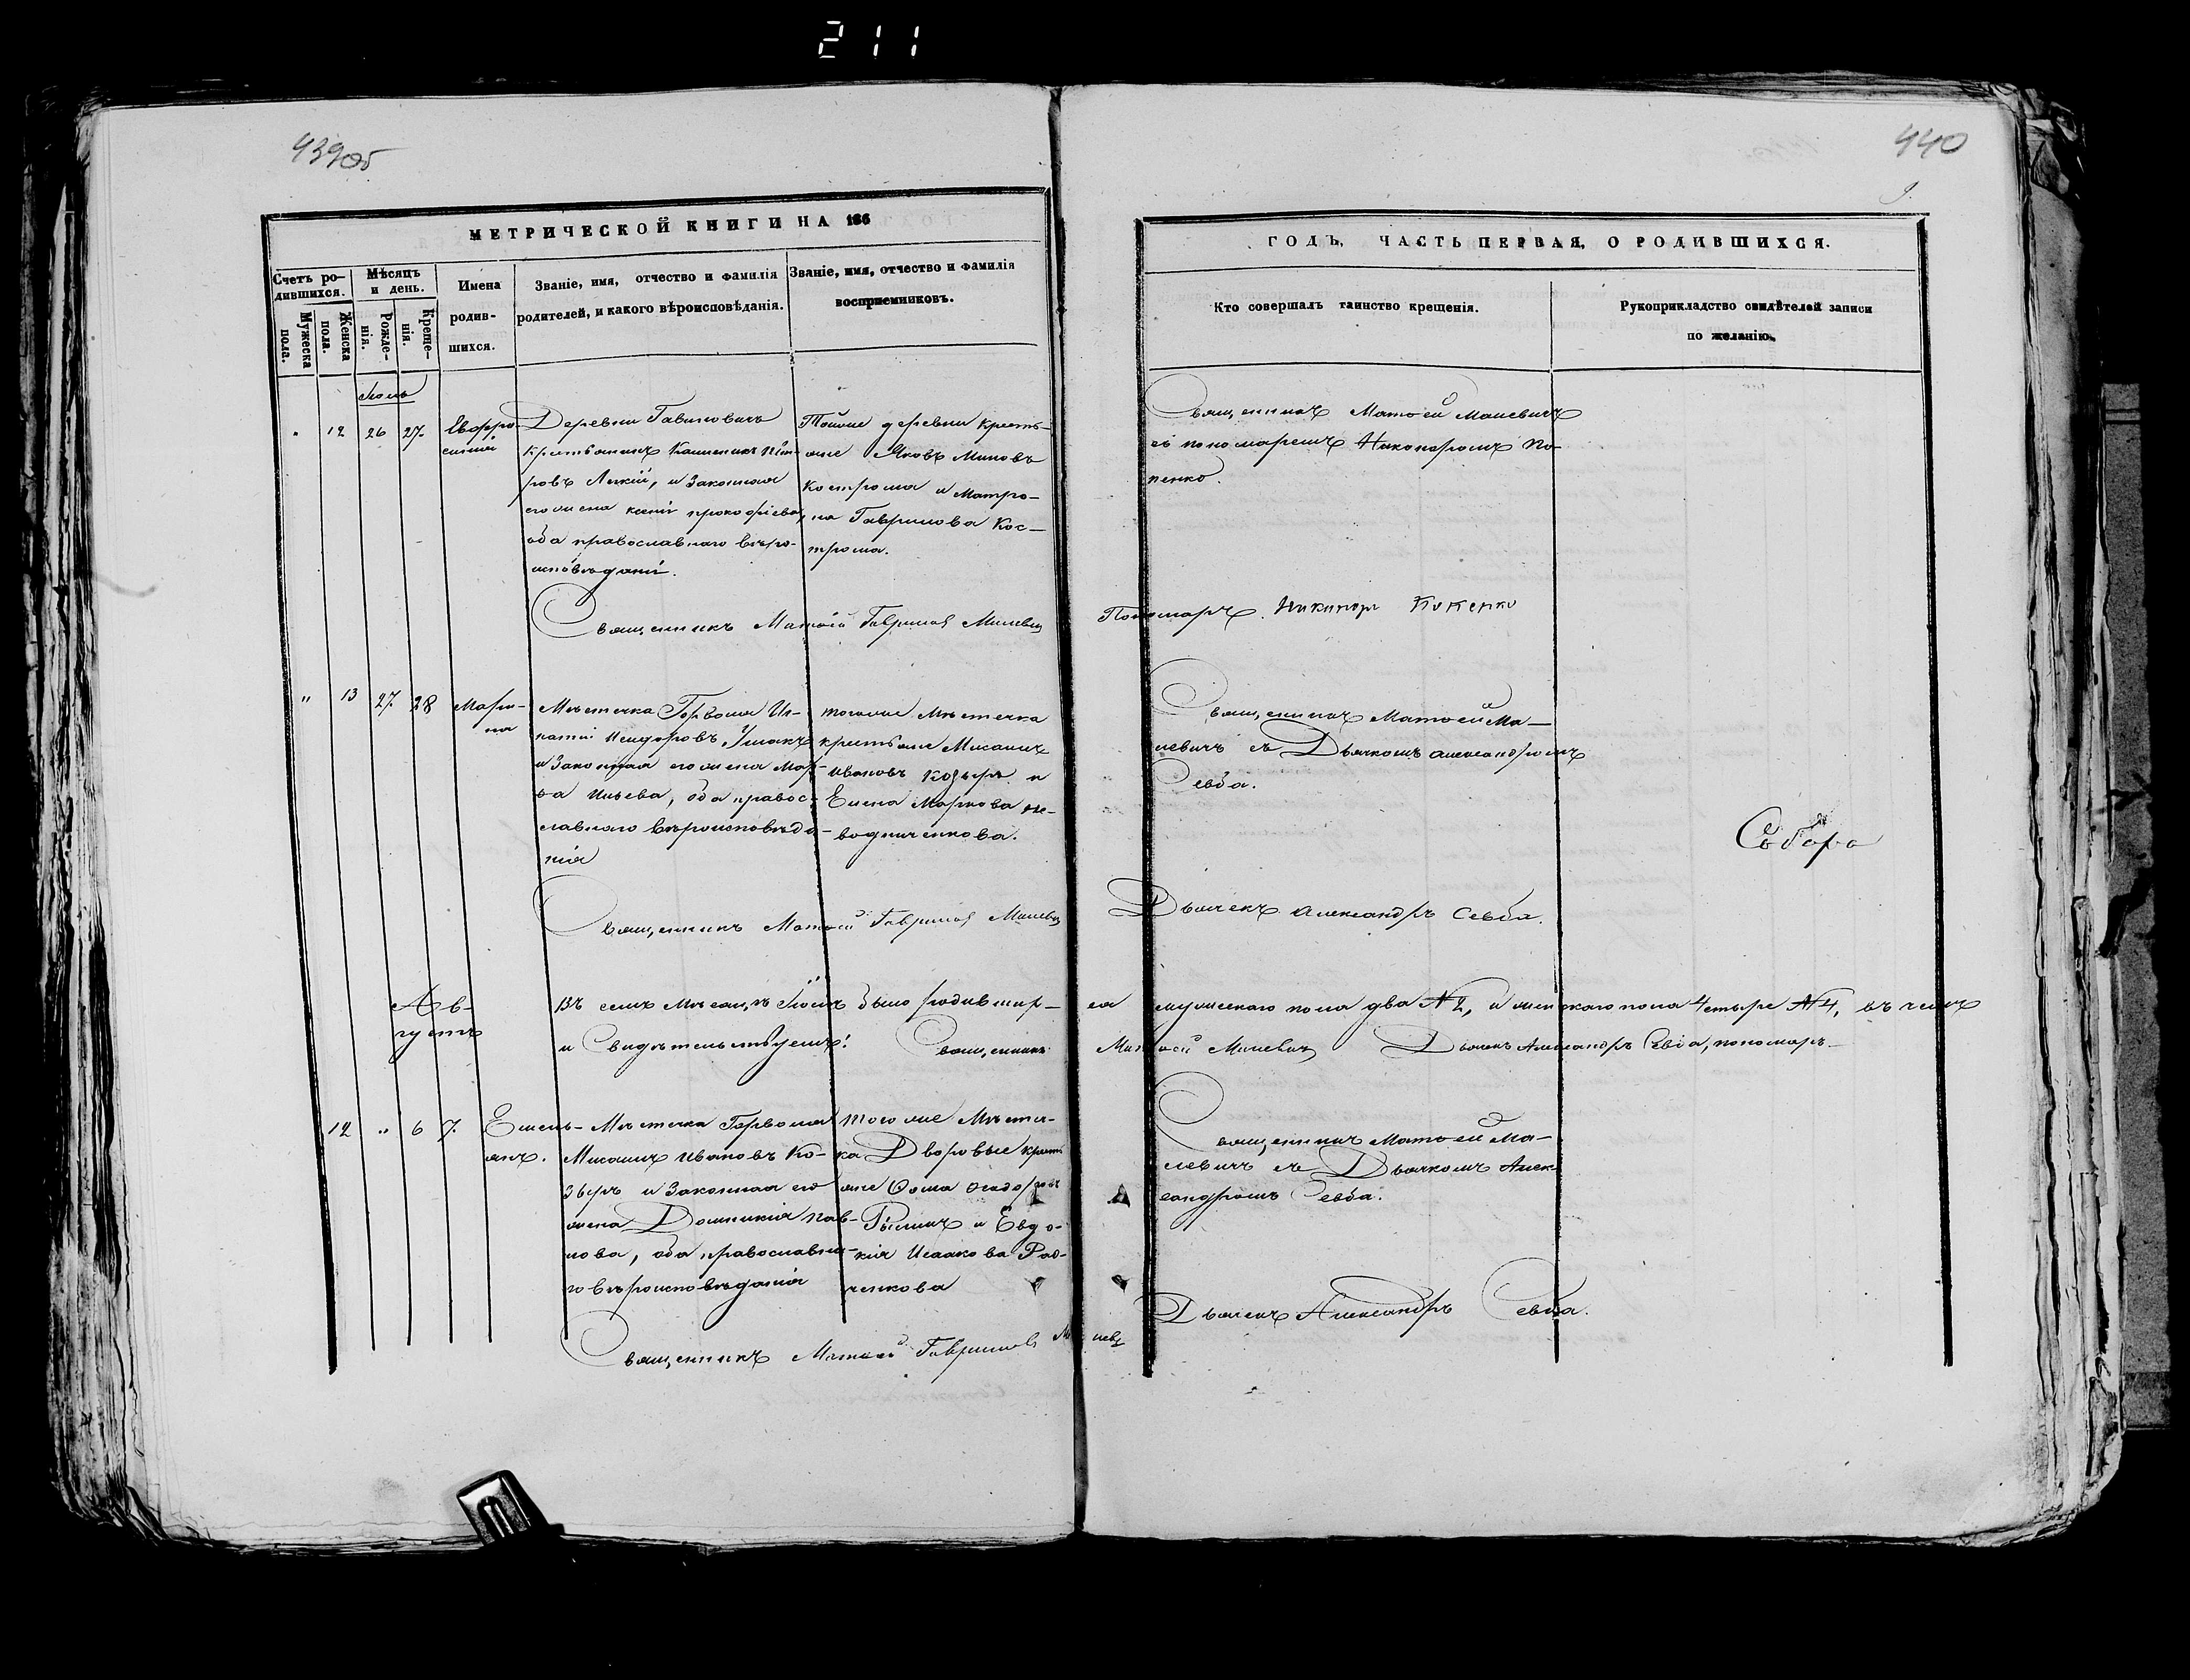 211
439об
440
9.
МЕТРИЧЕСКОЙ КНИГИ НА 186
ГОДЪ, ЧАСТЬ ПЕРВАЯ, О РОДИВШИХСЯ.
Счетъ ро-
дившихся.
Мужеска
пола.
Женска
пола.
Мѣсяцъ
и день.
Рожде-
нія.
Креще-
нія.
Имена
родив-
шихся.
Званіе, имя, отчество и фамилія
родителей, и какого вѣроисповѣданія.
Званіе, имя, отчество и фамилія
воспріемниковъ.
Кто совершалъ таинство крещенія.
Рукоприкладство свидѣтелей записи
по желанію.
Іюль
" 12 26 27.
Евфро
синія
Деревни Гавиловичъ
крестьянинъ Калиникъ Пет-
ровъ Легкій, и законная
его жена Ксенія Прокофіева,
оба православнаго вѣро-
исповѣданія.
Тойже деревни кресть-
яне Яковъ Миновъ
Кострома и Матро-
на Гаврилова Кос-
трома.
Священникъ Матѳей Малевичъ
съ пономаремъ Никифоромъ По-
пенко.
Священникъ Матѳей Гавриловъ Малевичъ
Пономарь Никифоръ Попенко
" 13 27. 28
Мари-
на
Мѣстечка Горволя Иг-
натій Исидоровъ Ушакъ
и законная его жена Мар-
ѳа Ильева, оба правос-
лавнаго вѣроисповѣда-
нія
тогоже мѣстечка
крестьяне Михаилъ
Ивановъ Козыръ и
Елена Маркова
водниченкова.
Священникъ Матѳей Ма-
левичъ съ Дьячкомъ Александромъ
Севба.
Собора
Священникъ Матѳей Гавриловъ Малевичъ
Дьячекъ Александръ Севба.
Ав-
густъ
Въ семъ мѣсяцѣ Іюлѣ было родивших-
ся мужескаго пола два №2, и женскаго пола четыре №4, въ чемъ
и свидѣтельствуемъ: Священникъ
Матѳей Малевичъ Дьячекъ Александръ Севба, пономарь
12 " 6 7.
Емель-
янъ.
Мѣстечка Горволя
Михаилъ Ивановъ Ко-
зыръ и законная его
жена Домникія Пав-
лова, оба православна-
го вѣроисповѣданія
того же мѣстеч-
ка Дворовые кресть
яне Ѳома Ѳедоровъ
и Евдо-
кія Исаакова Рад-
ченкова
Священникъ Матѳей Ма-
левичъ съ Дьячкомъ Алек
сандромъ Севба.
Дьячекъ Александръ Севба.
Священникъ Матѳей Гавриловъ Малевичъ